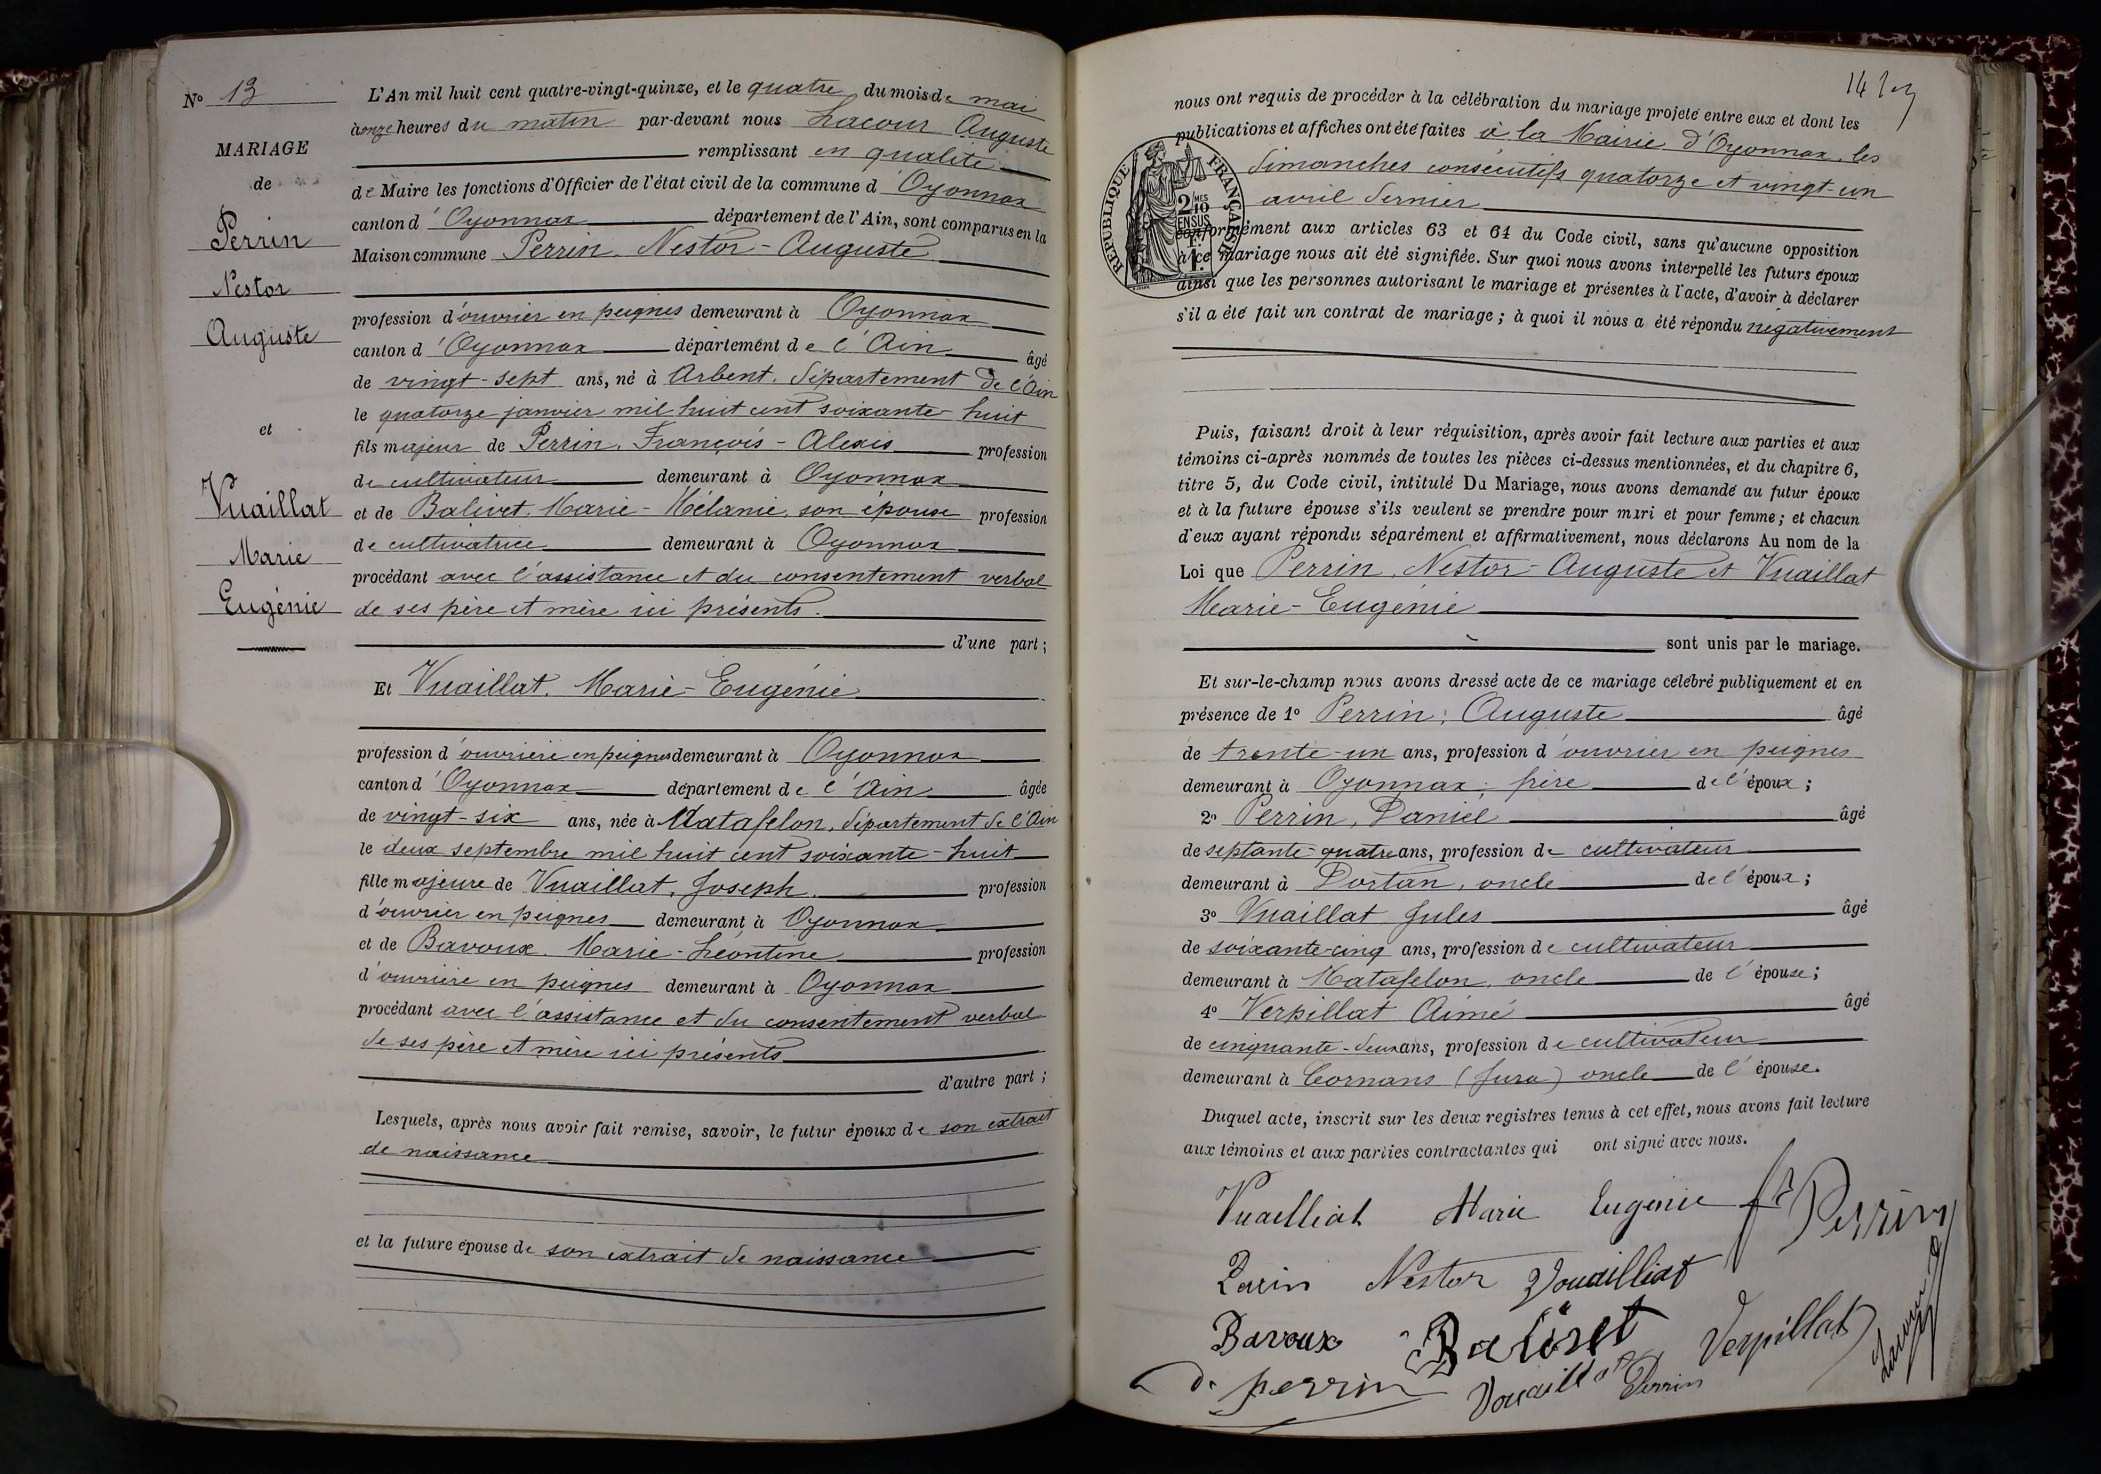 N° 13
MARIAGE
de
Perrin
Nestor
Auguste
et
Vuaillat
Marie
Eugénie
L'An mil huit cent quatre-vingt-quinze, et le quatre du mois de mai
à onze heures du matin par-devant nous Lacour Auguste
remplissant en qualité
de Maire les fonctions d'Officier de l'état civil de la commune d'Oyonnax
canton d'Oyonnax département de l'Ain, sont comparus en la
Maison commune Perrin, Nestor-Auguste
profession d'ouvrier en peignes demeurant à Oyonnax
canton d'Oyonnax département de l'Ain âgé
de vingt-sept ans, né à Arbent, département de l'Ain
le quatorze janvier mil huit cent soixante-huit
fils majeur de Perrin, François-Alexis profession
de cultivateur demeurant à Oyonnax
et de Balivet, Marie-Mélanie, son épouse profession
de cultivatrice demeurant à Oyonnax
procédant avec l'assistance et du consentement verbal
de ses père et mère ici présents.
d'une part;
Et Vuaillat, Marie-Eugénie
profession d'ouvrière en peignes demeurant à Oyonnax
canton d'Oyonnax département de l'Ain âgée
de vingt-six ans, née à Matafelon, département de l'Ain
le deux septembre mil huit cent soixante-huit
fille majeure de Vuaillat, Joseph profession
d'ouvrier en peignes demeurant à Oyonnax
et de Bavoux, Marie-Léontine profession
d'ouvrière en peignes demeurant à Oyonnax
procédant avec l'assistance et du consentement verbal
de ses père et mère ici présents
d'autre part;
Lesquels, après nous avoir fait remise, savoir, le futur époux de son extrait
de naissance
et la future épouse de son extrait de naissance
nous ont requis de procéder à la célébration du mariage projeté entre eux et dont les
publications et affiches ont été faites à la Mairie d'Oyonnax, les
dimanches consécutifs quatorze et vingt-un
avril dernier
conformément aux articles 63 et 64 du Code civil, sans qu'aucune opposition
à ce mariage nous ait été signifiée. Sur quoi nous avons interpellé les futurs époux
ainsi que les personnes autorisant le mariage et présentes à l'acte, d'avoir à déclarer
s'il a été fait un contrat de mariage; à quoi il nous a été répondu négativement
RÉPUBLIQUE FRANÇAISE
2/10
MES
EN SUS
1F.
Puis, faisant droit à leur réquisition, après avoir fait lecture aux parties et aux
témoins ci-après nommés de toutes les pièces ci-dessus mentionnées, et du chapitre 6,
titre 5, du Code civil, intitulé Du Mariage, nous avons demandé au futur époux
et à la future épouse s'ils veulent se prendre pour mari et pour femme; et chacun
d'eux ayant répondu séparément et affirmativement, nous déclarons Au nom de la
Loi que Perrin, Nestor-Auguste et Vuaillat
Marie-Eugénie
sont unis par le mariage.
Et sur-le-champ nous avons dressé acte de ce mariage célébré publiquement et en
présence de 1° Perrin, Auguste âgé
de trente-un ans, profession d'ouvrier en peignes
demeurant à Oyonnax, frère de l'époux;
2° Perrin, Daniel âgé
de septante-quatre ans, profession de cultivateur
demeurant à Dortan, oncle de l'époux;
3° Vuaillat Jules âgé
de soixante-cinq ans, profession de cultivateur
demeurant à Matafelon, oncle de l'épouse;
4° Verpillat Aimé âgé
de cinquante-deux ans, profession de cultivateur
demeurant à Cornans (Jura) oncle de l'épouse.
Duquel acte, inscrit sur les deux registres tenus à cet effet, nous avons fait lecture
aux témoins et aux parties contractantes qui ont signé avec nous.
Vuailliat Marie Eugenie Perrin
Perin Nestor Vouailliat
Bavoux Balivet Verpillat Lacour
D. perrin Vouaillat Perrin